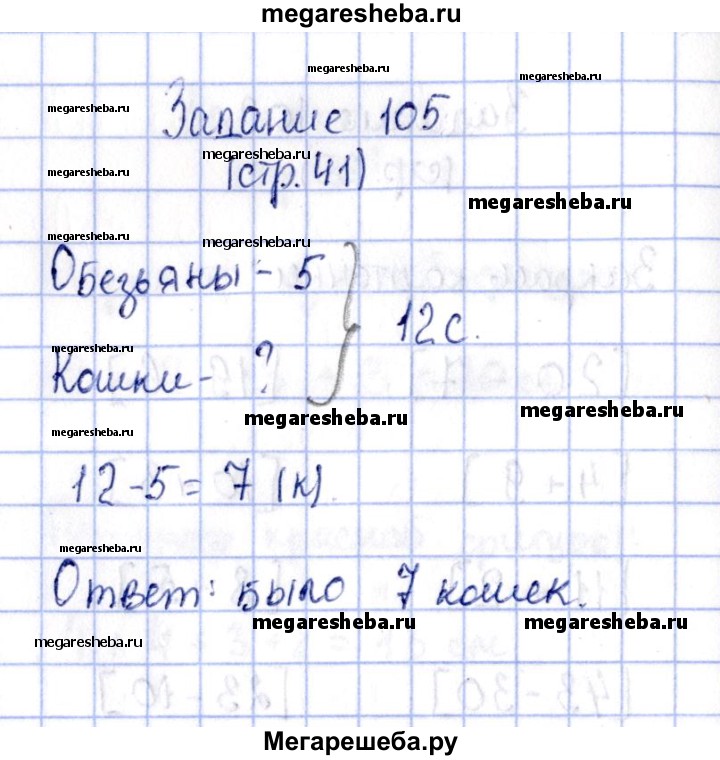 megaresheba.ru
megaresheba.ru
megaresheba.ru
megaresheba.ru
Задание 105
megaresheba.ru
(стр. 41)
megaresheba.ru
megaresheba.ru
megaresheba.ru
megaresheba.ru
Обезьяны - 5
12 с.
megaresheba.ru
Кошки - ?
megaresheba.ru
megaresheba.ru
megaresheba.ru
12-5=7 (к)
megaresheba.ru
Ответ: было 7 кошек.
megaresheba.ru
megaresheba.ru
megaresheba.ru
Мегарешеба.ру